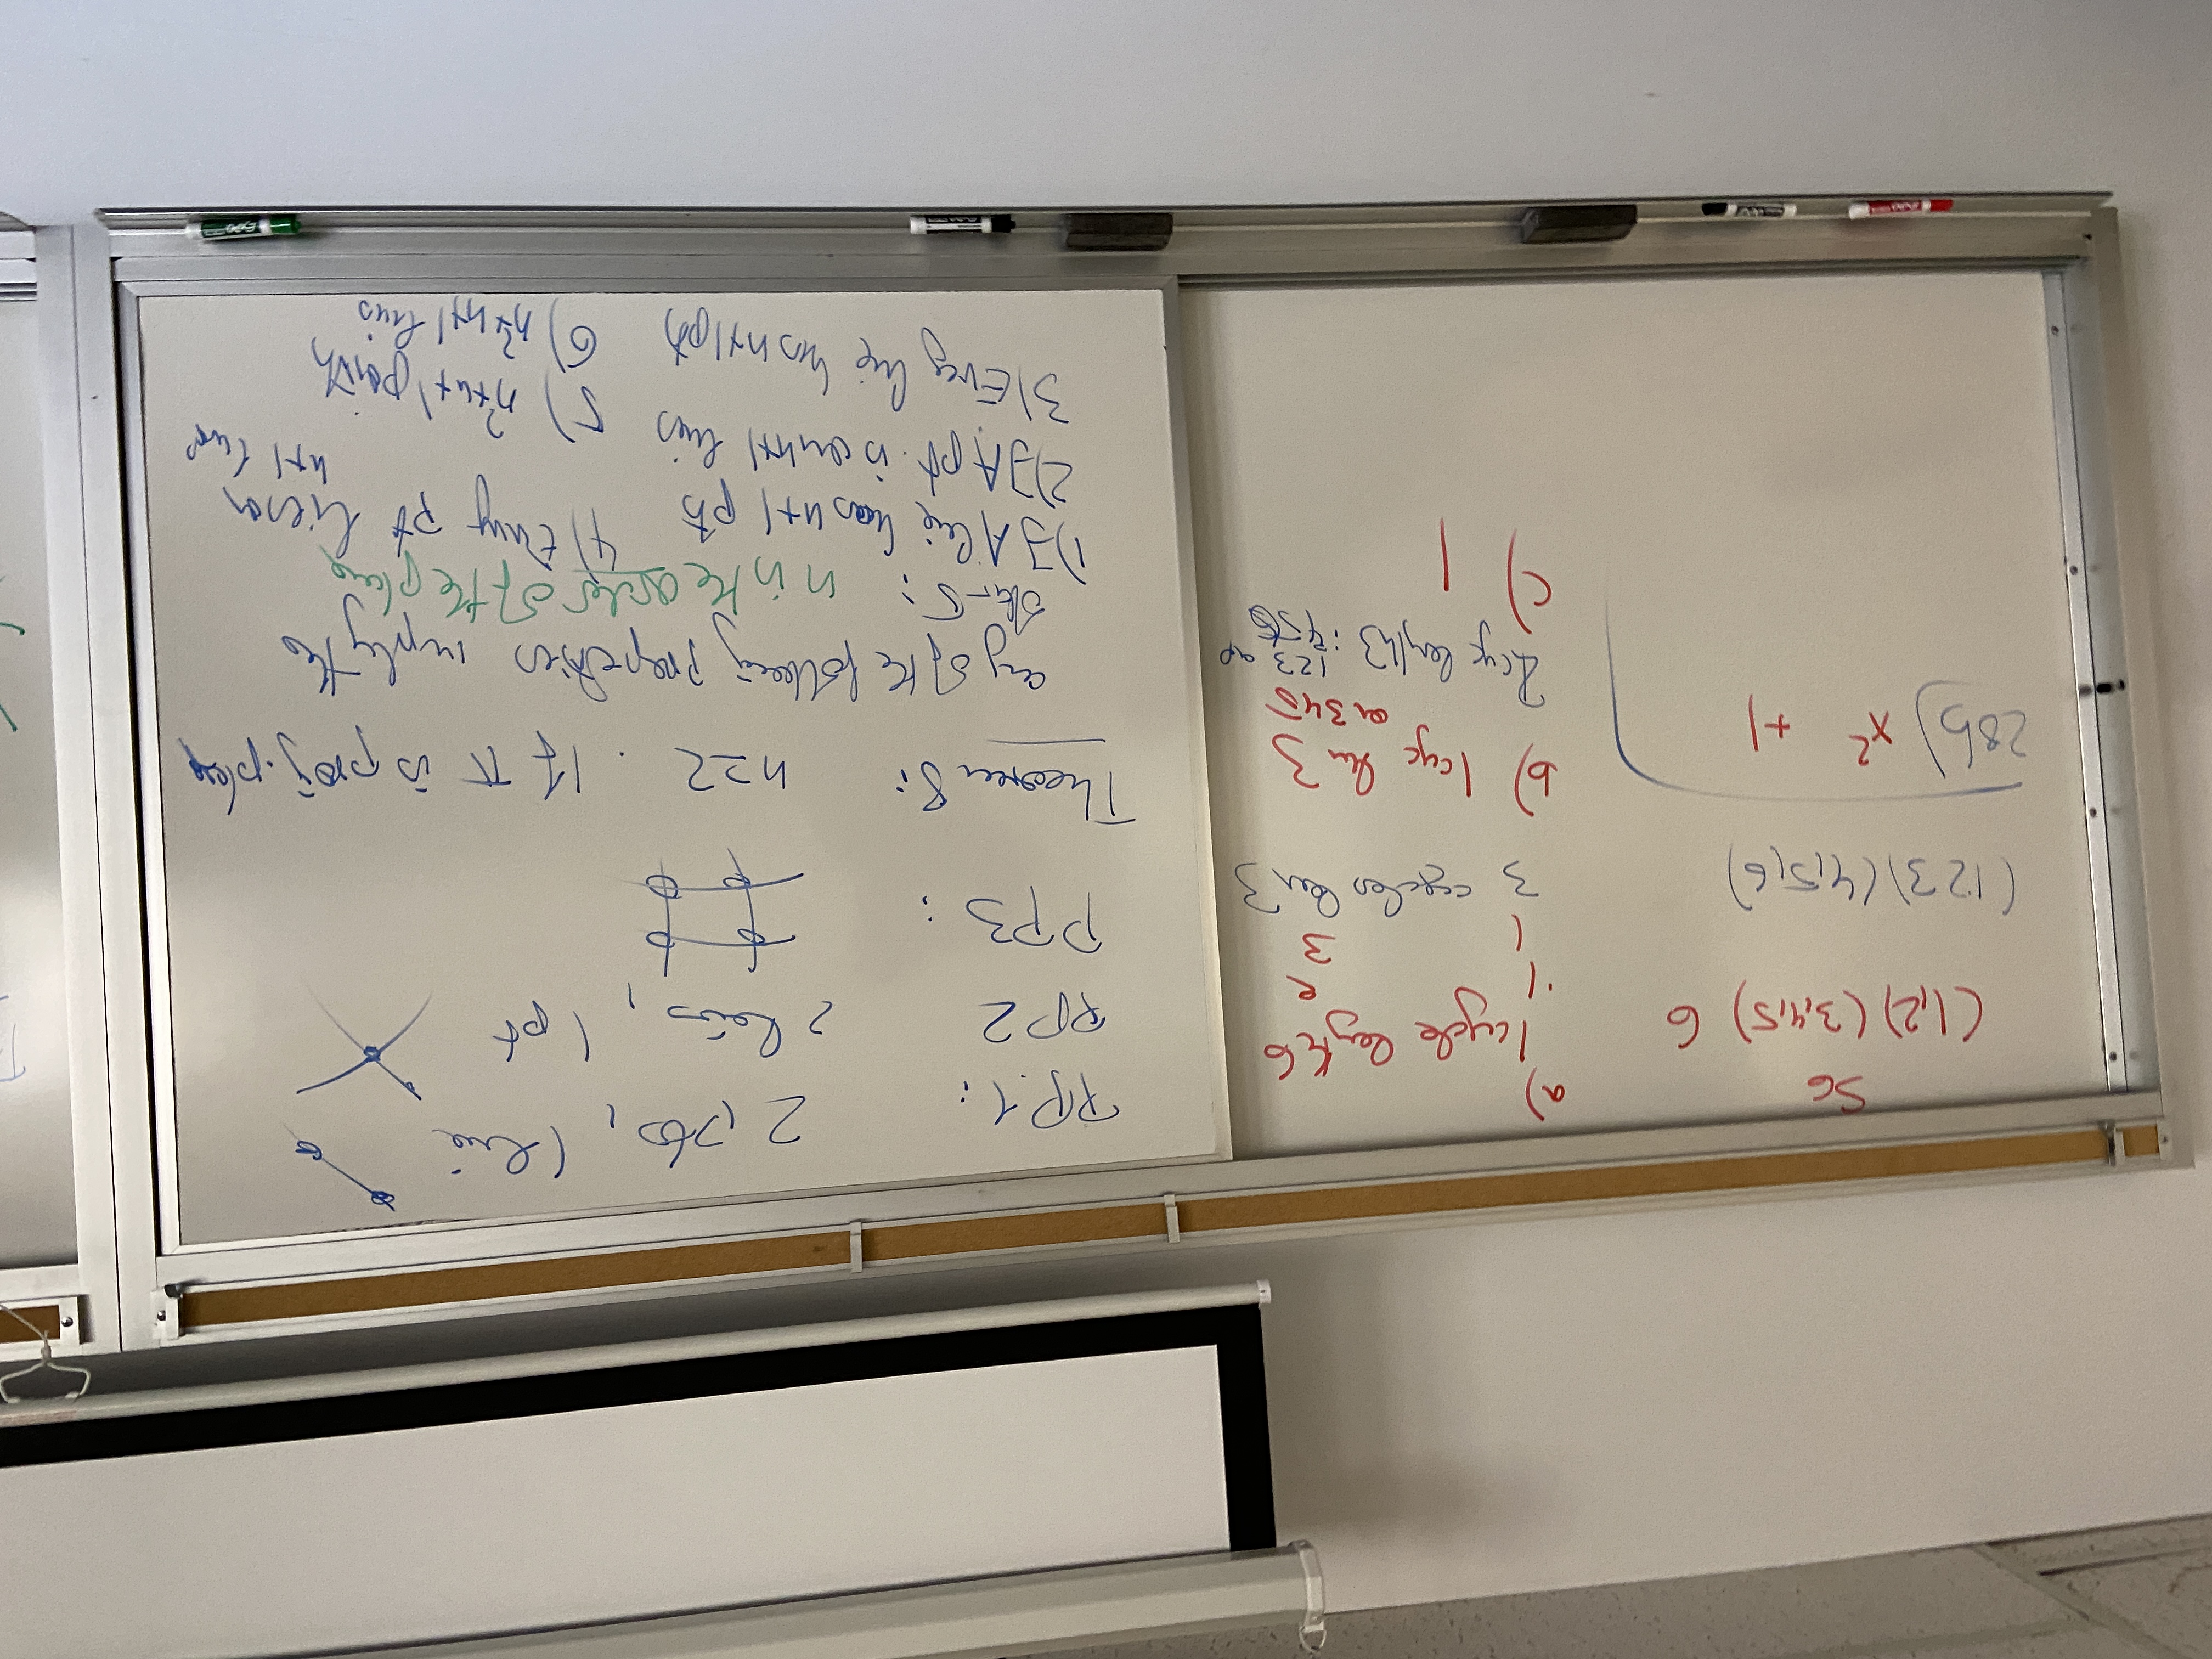 S6
(1,2) (3,4,5) 6
(1 2 3) (4,5,6)
28b) x² +1
a)
1 cycle length 6
1 2
1 3
3 cycles len 3
b) 1 cyc len 3
on 345
2 cyc length 3 : 123 or
456
c) 1
PP.1: 2 pts, 1 line
PP2 2 lines, 1 pt
PP3 :
Theorem 8: n≥2 . If π is proj. plane
any of the following properties imply the
other 5: n is the order of the plane
1) ∃ A line has n+1 pts
2) ∃ A pt. is on n+1 lines
3) Every line has n+1 pts
4) Every pt lies on
n+1 line
5) n²+n+1 points
6) n²+n+1 lines